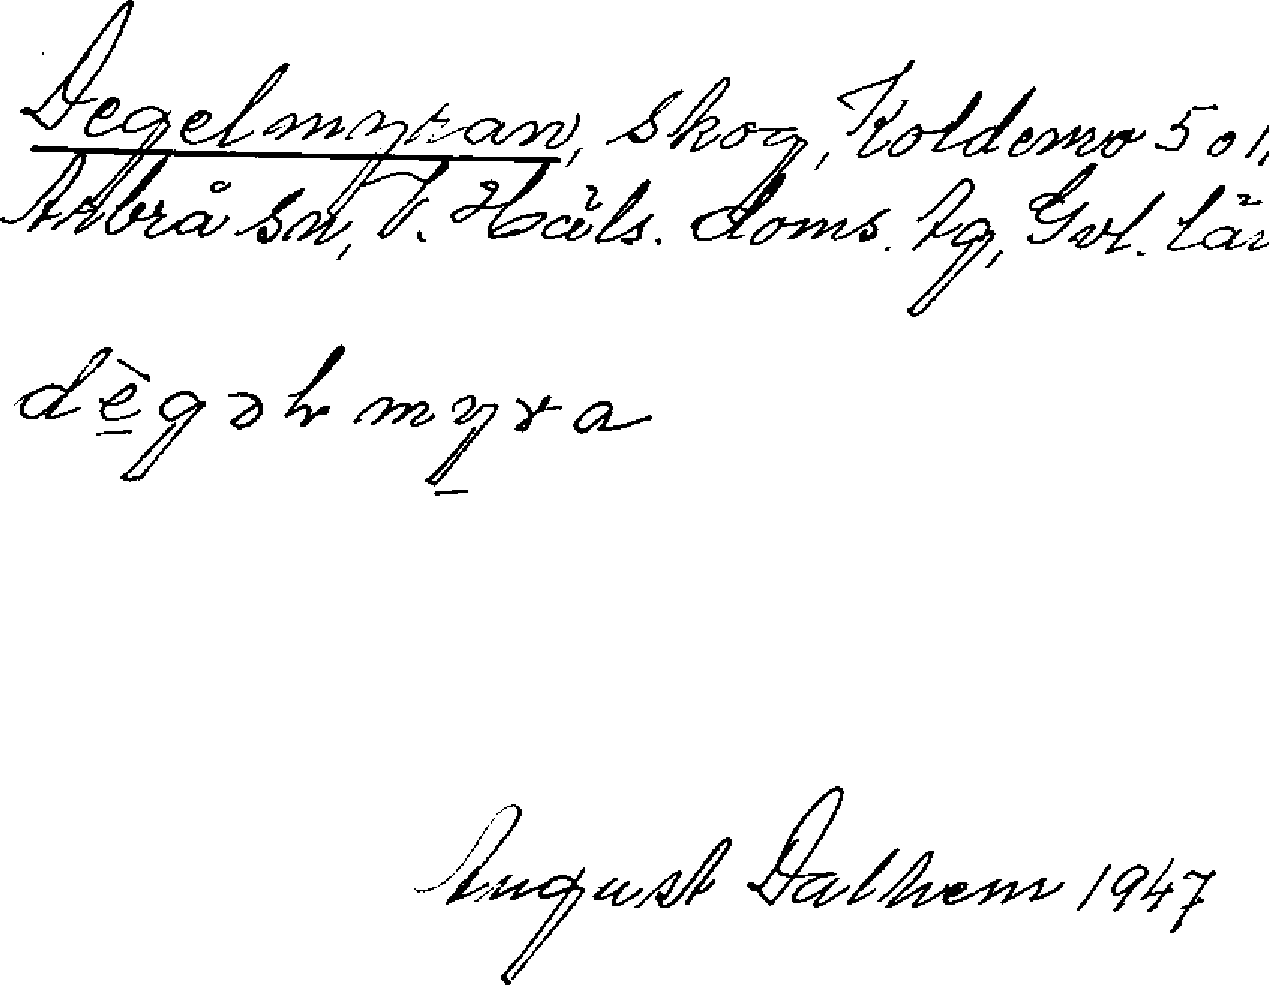 Degelmyran, skog, Koldemo 5 o 1,
Arbrå sn, V. Häls. doms. tg, Gvl. län
dègəlmyra
August Dalhem 1947